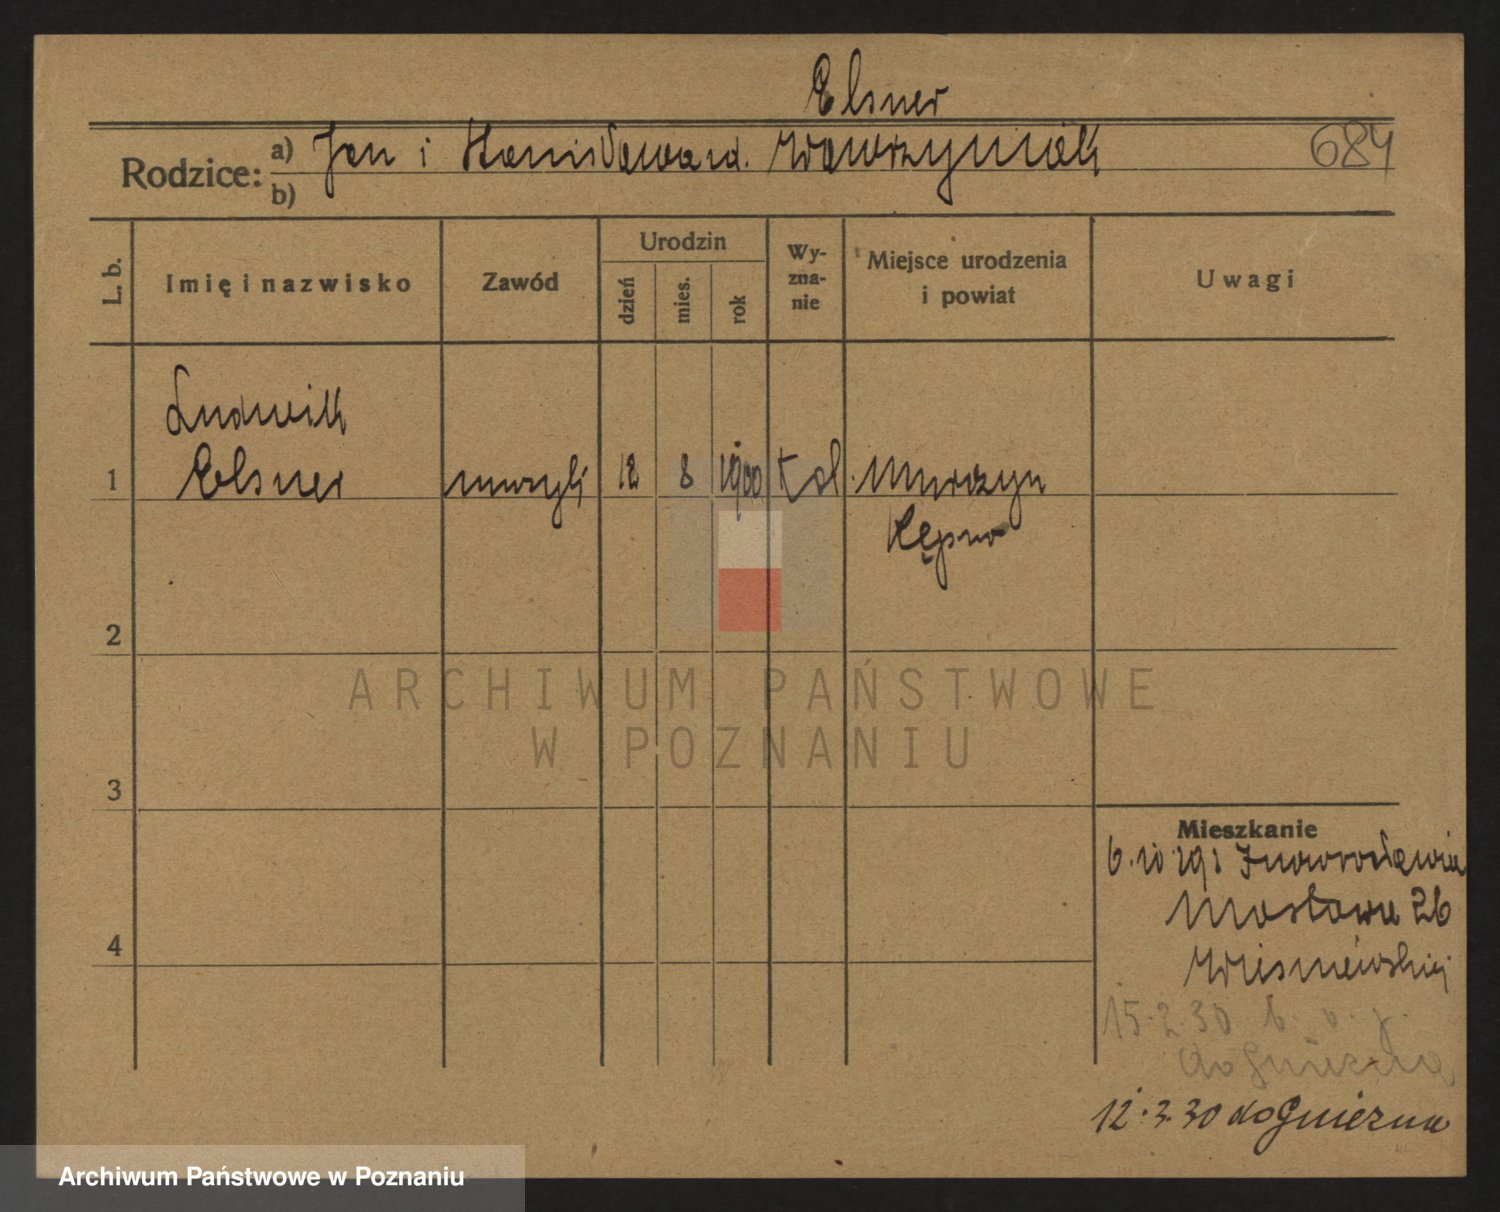 Elsner
Rodzice: a) Jan i Stanisława ud. Wawrzyniak
684
b)
L. b.
Imię i nazwisko
Zawód
Urodzin
dzień
mies.
rok
Wy-
zna-
nie
Miejsce urodzenia
i powiat
Uwagi
Ludwik
1 Elsner
18 8 1900 kat. Murzyn
Kępno
2
3
4
ARCHIWUM PAŃSTWOWE
W POZNANIU
Mieszkanie
6.10.29
Mostowa 26
Wiśniewskiej
15.2.30 b. o. j.
do Gniezna
12.3.30 do Gniezna
Archiwum Państwowe w Poznaniu